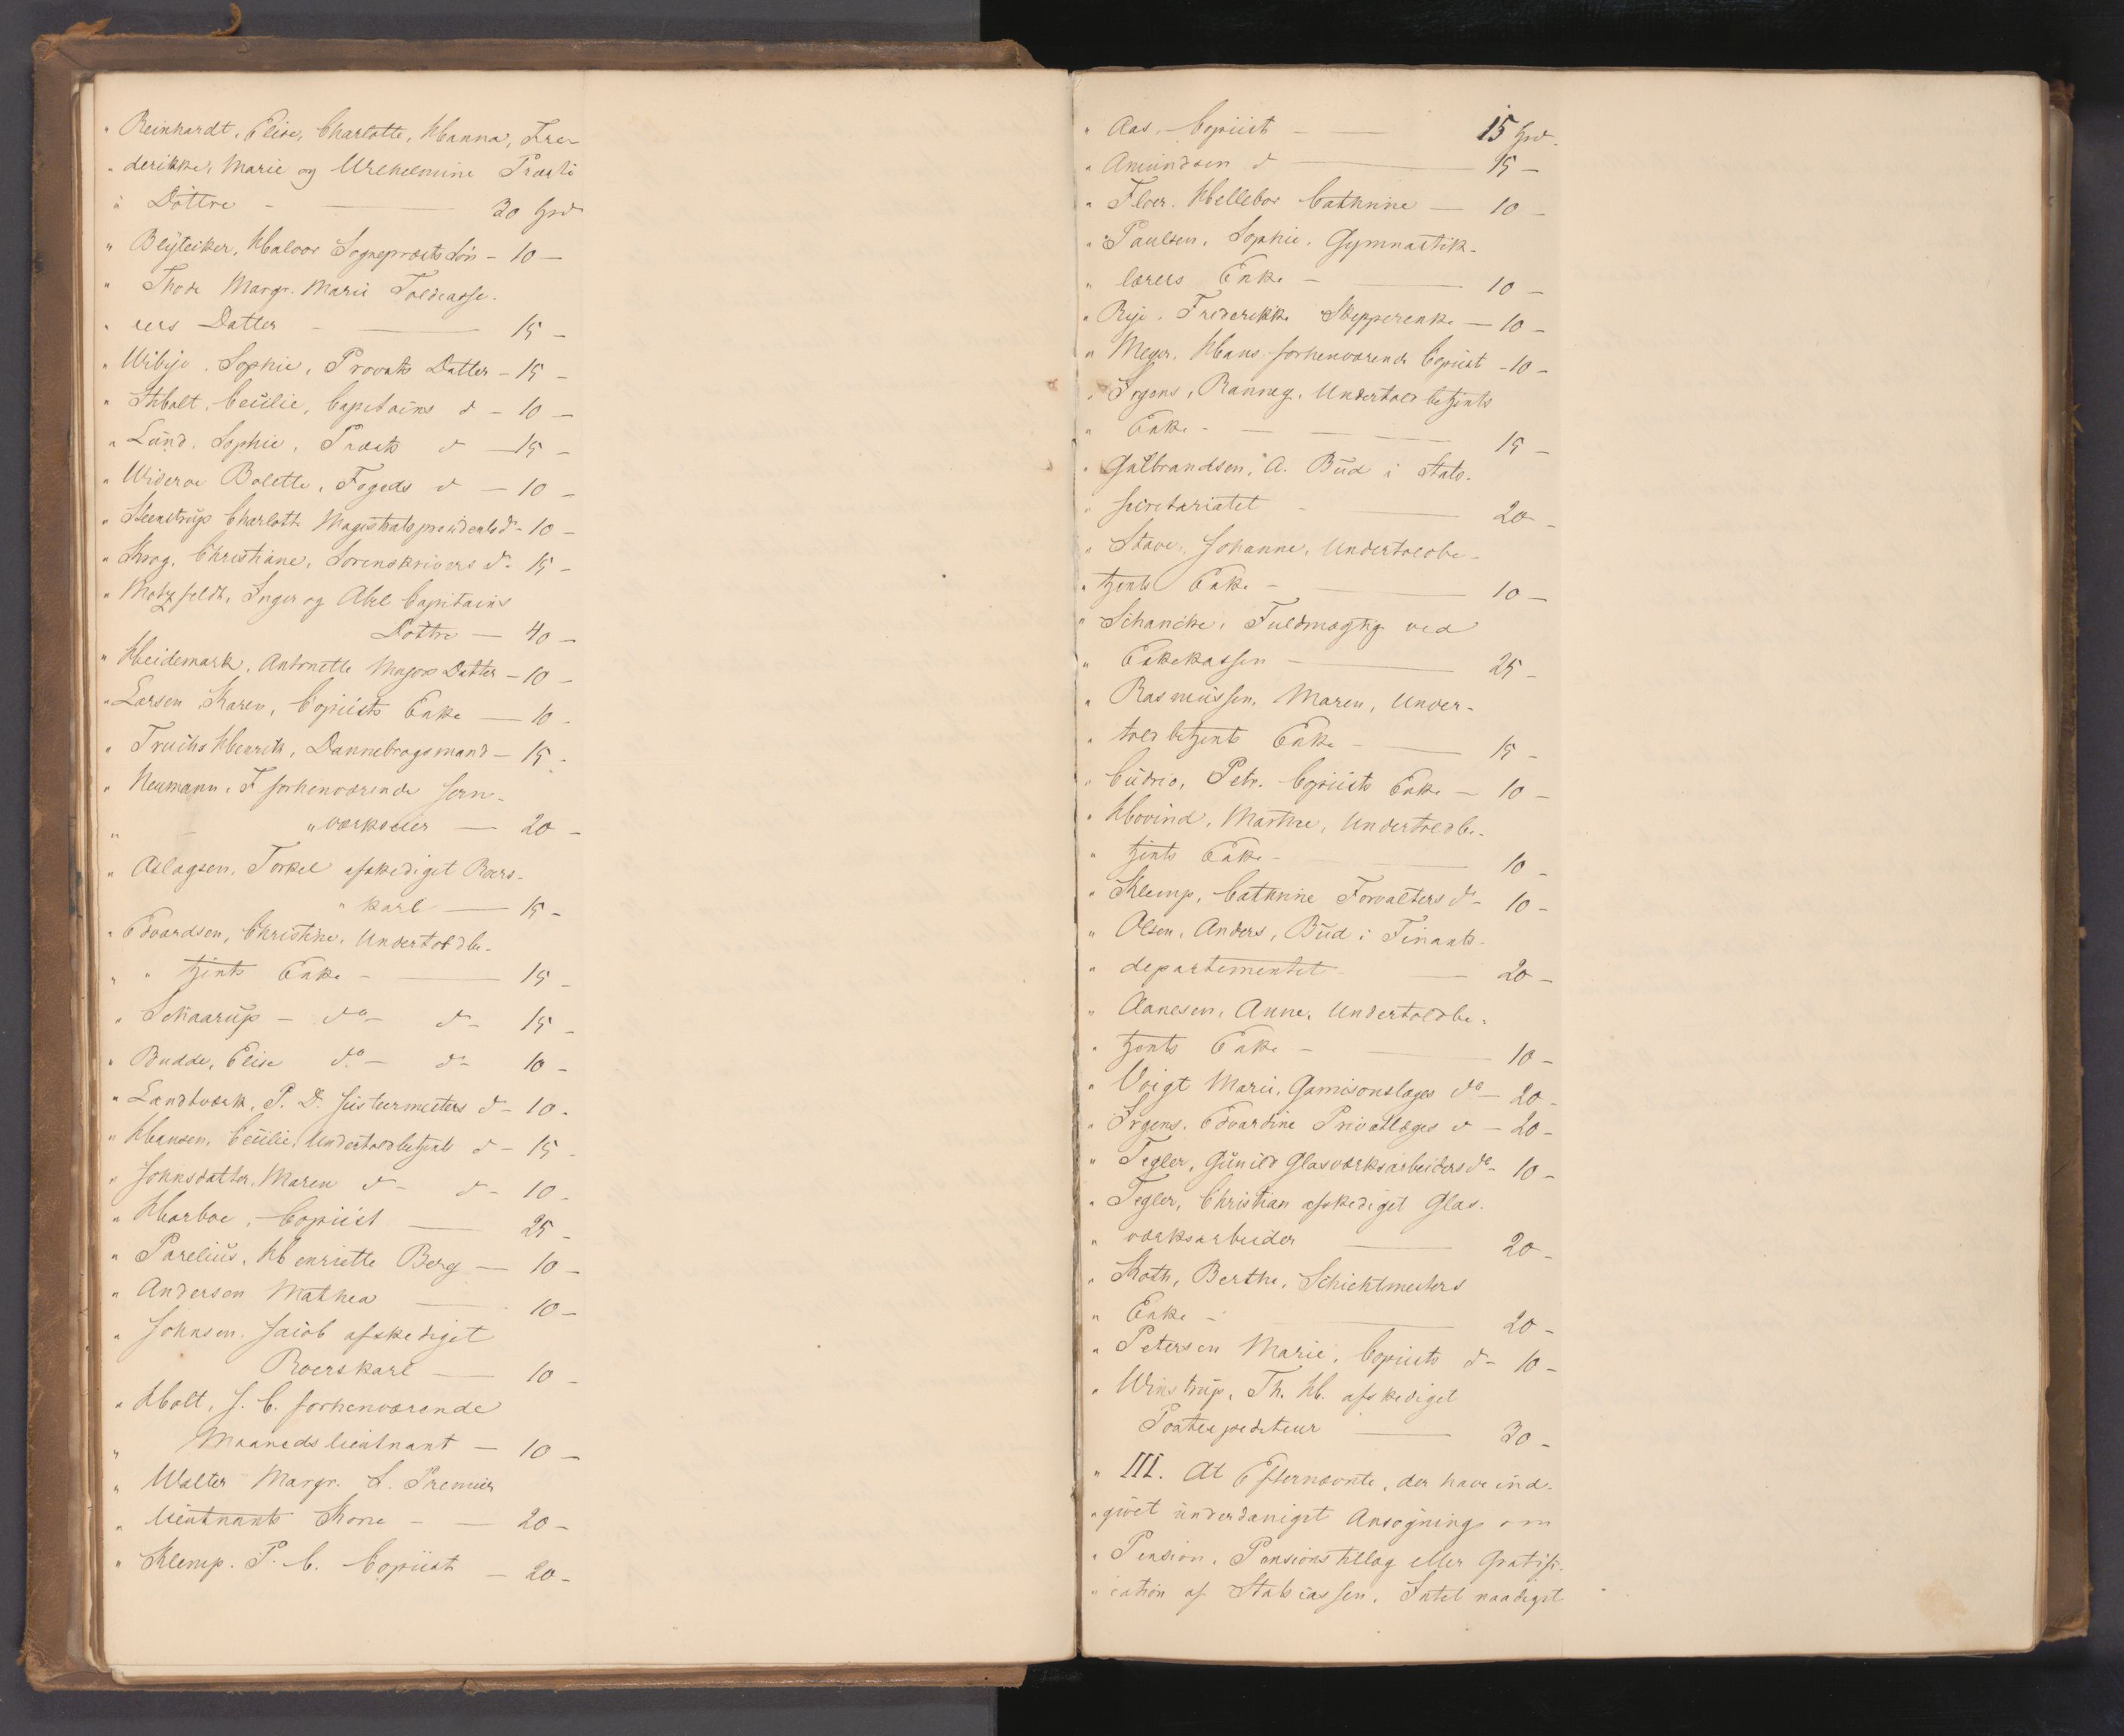 " Reinhardt, Elise, Charlotte, Hanna, Fre-
" derikke, Marie og Wilhelmine Præsti
" Döttre - — 30 Spd
" Blÿteiker, Halvor Sogneprests Sön - 10 —
" Thode Margr. Marie Toldcasse-
" rers Datter - — 15 -
" Wibye, Sophie, Provsts Datter - 15 -
" Stbalt, Cecilie, Capitains d - 10 —
" Lünd, Sophie, Præsts d — 15 -
" Wideroe Bolette, Fogeds d — 10 -
" Steenstrüp Charlotte Magistratspræsidents do - 10 -
" Krog, Christiane, Sorenskrivers d - 15 -
" Motzfeldt, Inger og Abel Capitains
Dottre — 40 -
" Heidemark, Antonette Majors Datter - 10 -
" Larsen, Karen, Copiists Enke — 10 -
" Truchs Henrik, Dannebrogsmand - 15 -
" Neumann, F forhenværende Jern-
" - " værkseier — 20 -
" Aslagsen, Torkel afskediget Roers-
" karl — 15 -
" Edvardsen, Christine, Undertoldbe-
" " tjents Enke - — 15 -
" Schaarüp - do - d - 15 -
" Budde, Elise do - do 10 -
" Landtværk, P. D. Justeermesters d - 10 -
" Hansen, Cecilie, Undertoldbetjents d - 15 -
" Johnsdatter, Maren d - d - 10 -
" Harboe, Copiist — 25 -
" Parelius, Henriette Berg — 10 -
" Andersen Mathea — 10 -
" Johnsen, Jacob afskediget
Roerskarl — 10 -
" Holt, J. C. forhenværende
" Maanedslieutnant — 10 -
" Walter Margr. L. Premier
" lieutnants Kone - — 20 -
" Klemp. P. C. Copiist — 20 -
" Aas, Copiist - — 15 Spd.
" Amündsen d — 15 -
" Floer, Hellebor Cathrine — 10 -
" Paulsen, Sophie, Gymnastik-
" lærers Enke - — 10 -
" Rye, Frederikke Skepperenke — 10 -
" Meyer, Hans forhenværende Copiist - 10 -
" Irgens, Rannæg, Undertoldbetjents
" Enke - — — — 15 -
" Gülbrandsen, A. Büd i Stats-
" secretariatet - — 20 -
" Stave, Johanne, Undertoldbe-
" tjents Enke - — 10 —
" Schancke, Fuldmægtig ved
" Enkekassen — 25 -
" Rasmüssen, Maren, Under-
" toldbetjents Enke - — 15 -
" Cüdrio, Petr. Copiists Enke — 10 -
" Hovind, Marthe, Undertoldbe-
" tjents Enke - — 10 -
" Klemp, Cathrine Forvalters d - 10 -
" Olsen, Anders, Büd i Finants-
" departementet - — 20 -
" Aanesen, Anne, Undertoldbe-
" tjents Enke - — 10 -
" Voigt Marie, Garnisonslæges do - 20 -
" Irgens, Edvardine Privatlæges d - 20 -
" Tegler, Günild Glasværksarbeiders do - 10 -
" Tegler, Christian afskediget Glas-
" værksarbeider — 20 -
" Koth, Berthe, Schichtmesters
" Enke - — 20 -
" Petersen Marie, Copiists d - 10 -
" Winstrüp, Th. H. afskediget
Postexpediteur — 30 -
" III. At Efternævnte, der have ind-
" givet ünderdanigst Ansøgning om
" Pension, Pensionstillæg eller Gratifi-
" cation af Statscassen, Intet naadigst